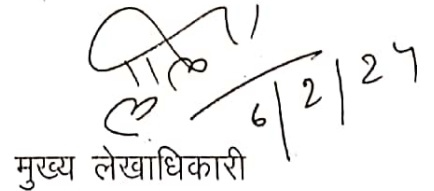 6/2/24
मुख्य लेखाधिकारी